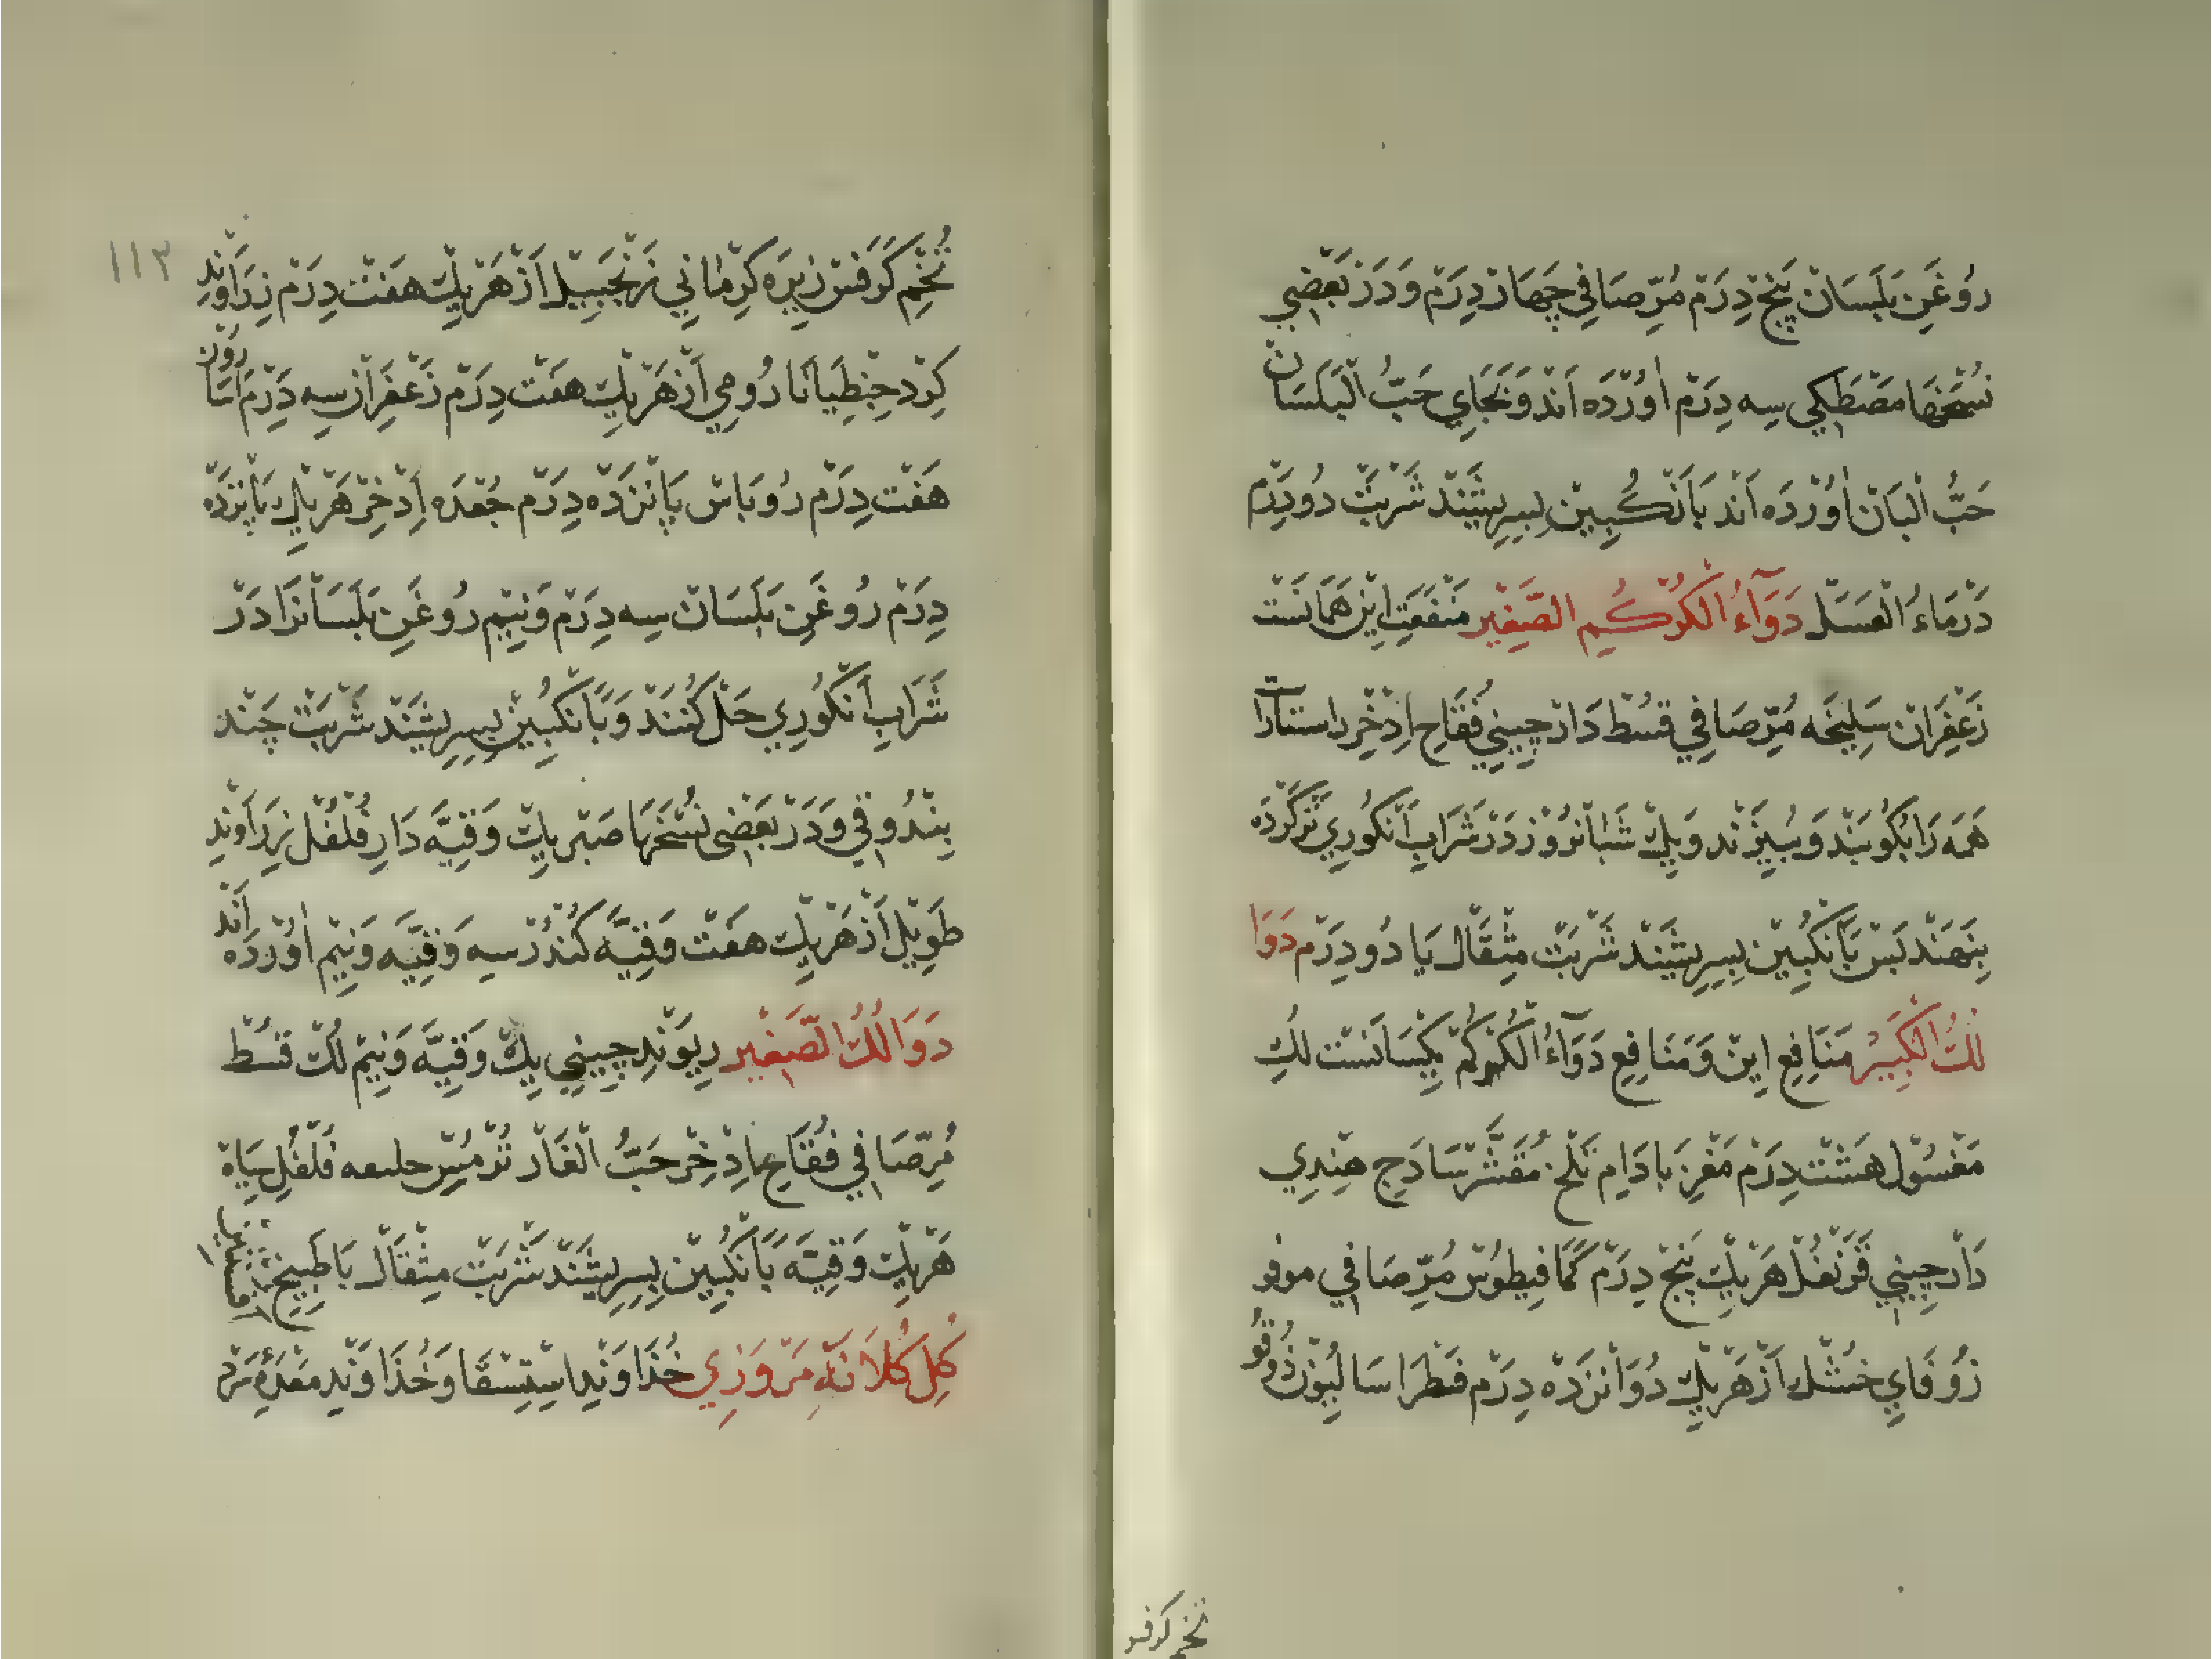 رُوغَنِ بَلَسَانْ پَنْج دِرَمْ مُرِّ صَافِي چَهَارْ دِرَمْ وَدَرْ بَعْضِي
نُسْخَهَا مَصْطَكِي سِه دِرَمْ اُورْدَه اَنْد وَبَجَايِ حَبُّ الْبَلَسَانْ
حَبُّ الْبَانْ اُورْدَه اَنْد بَاَنْگُبِينْ بِسِرِيشَنْد شَرْبَتْ دُو دِرَمْ
دَرْ مَاءُ الْعَسَلْ دَوَآءُ الْكُرْكُمِ الصَّغِيْر مَنْفَعَتِ اِينْ هَمَانَسْت
زَعْفَرَانْ سَلِيخَه مُرِّ صَافِي قُسْطْ دَارْچِينِي فُقَاحِ اِذْخِرْ رَاسْتَارَاسْت
هَمَه رَا بِكُوبَنْد وَبِبِيزَنْد وَيِكْ شَبَانْرُوزْ دَرْ شَرَابِ اَنْگُورِي تَرْ كَرْدَه
بِنَهَنْد پَسْ بَاَنْگُبِينْ بِسِرِيشَنْد شَرْبَتْ مِثْقَالْ يَا دُو دِرَمْ دَوَا
لُكُّ الْكَبِيْرُ مَنَافِعِ اِينْ وَمَنَافِعِ دَوَآءُ الْكُرْكُمْ يِكْسَانَسْت لُكِ
مَغْسُولْ هَشْتْ دِرَمْ مَغْزِ بَادَامِ تَلْخ مُقَشَّرْ سَادَجِ هِنْدِي
دَارْچِينِي قَرَنْفُلْ هَرْيِكْ پَنْج دِرَمْ كَمَافِيطُوسْ مُرِّ صَافِي موفو
زُوفَايِ خُشْك اَزْ هَرْيِكْ دُوَانْزَدَه دِرَمْ فَطْرَاسَالِيُونْ دُوقُو
تخم كرفس
١١٣
تُخْمِ كَرَفْسْ زِيرَه كِرْمَانِي زَنْجَبِيلْ اَزْ هَرْيِكْ هَفْتْ دِرَمْ زِرَاوَنْدِ
كِرْد جِنْطِيَانَا رُومِي اَزْ هَرْيِكْ هَفْتْ دِرَمْ زَعْفَرَانْ سِه دِرَمْ اَسَارُونْ
هَفْت دِرَمْ رُوبَاسْ پَانْزَدَه دِرَمْ جُعْدَه اِذْخِرْ هَرْيِكْ پَانْزَدَه
دِرَمْ رُوغَنِ بَلَسَانْ سِه دِرَمْ وَنِيمْ رُوغَنِ بَلَسَانْرَا دَرْ
شَرَابِ اَنْگُورِي حَلْ كُنَنْد وَبَاَنْگُبِينْ بِسِرِيشَنْد شَرْبَتْ چَنْد
بِنْدُوقِي وَدَرْ بَعْضِي نُسْخَهَا صَبْر يِكْ وَقِيَّه دَارِ فُلْفُلْ زَرَاوَنْدِ
طَوِيلْ اَزْ هَرْيِكْ هَفْتْ وَقِيَّه كُنْدُرْ سِه وَقِيَّه وَنِيمْ اُورْدَه اَنْد
دَوَا لُكُّ الصَّغِيْر رِيوَنْدِ چِينِي يِكْ وَقِيَّه وَنِيمْ لُكْ قُسْطْ
مُرِّ صَافِي فُقَاحِ اِذْخِرْ حَبُّ الْغَارْ تُرْمُسْ حلبه فُلْفُلِ سِيَاهْ
هَرْيِكْ وَقِيَّه بَاَنْگُبِينْ بِسِرِيشَنْد شَرْبَتْ مِثْقَالْ بَا طَبِيخ
كِلِ كُلَانَهِ مَرْوَزِي خُذَاوَنْدِ اِسْتِسْقَا وَخُذَاوَنْدِ مِعْدَهٔ